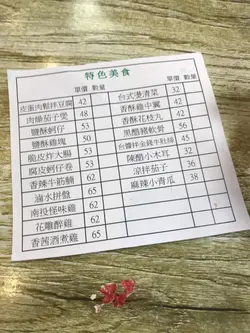 特色美食
單價 數量
單價 數量
皮蛋肉鬆拌豆腐 42
肉燥茄子煲 48
鹽酥蚵仔 53
鹽酥雞塊 50
脆皮炸大腸 53
腐皮蚵仔卷 53
香辣牛筋腩 62
滷水拼盤 65
南投怪味雞 62
花雕醉雞 62
香茜酒煮雞 65
台式燙清菜 32
香酥雞中翼 42
香酥花枝丸 42
黑醋豬軟骨 56
台醬拌金錢牛肚絲 45
陳醋小木耳 32
涼拌茄子 36
麻辣小青瓜 38